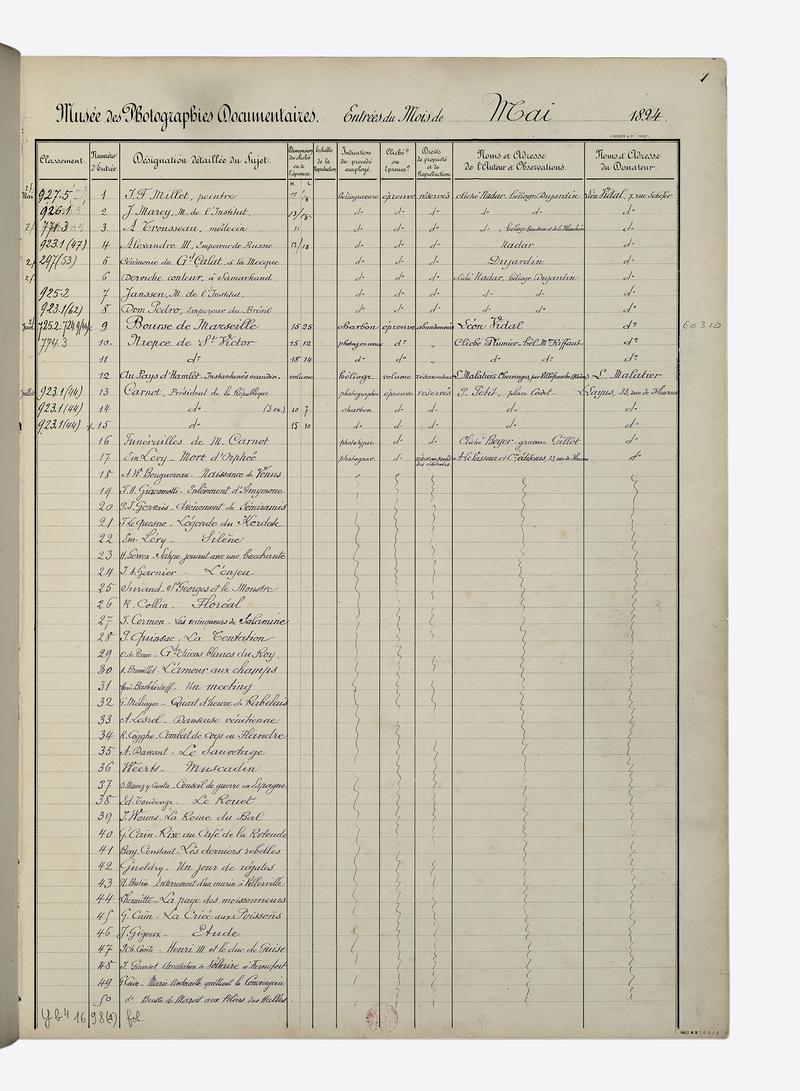 1
Musée des Photographies Documentaires. Entrées du Mois de Mai 1894.
Classement. Numéro d'Entrée Désignation détaillée du Sujet. Dimensions du cliché ou de l'épreuve H. L. Echelle de la Reproduction Indication du procédé employé. Cliché? ou Epreuve? Droits de propriété et de Reproduction Noms et Adresse de l'Auteur et Observations. Noms et Adresse du Donateur.
Mai 927.5 1 J. F. Millet, peintre héliogravure épreuve réservés cliché Nadar, héliogr. Dujardin Léon Vidal, 7, rue Scheffer
926.1 2 J. Marey, M. de l'Institut, 13/18 do do do do do do
3 A. Trousseau, médecin 11 do do do do
923.1 (47) 4 Alexandre III, Empereur de Russie 13/18 do do do Nadar do
297 (53) 5 Cérémonie du Gd Galat, à la Mecque do do do Dujardin do
6 Derviche conteur, à Samarkand do do do cliché Nadar, héliogr. Dujardin do
925.2 7 Janssen, M. de l'Institut, do do do do do do
923.1 (62) 8 Dom Pedro, Empereur du Brésil do do do do do do
9 Bourse de Marseille 15 25 charbon épreuve abandonnés Léon Vidal do
774.3 10 Niepce de St Victor 15 12 do " Cliché Plumier - hél. Mme Riffaut do
11 do 18 14 do do " do do do
12 Au Pays d'Hamlet - Instantanés scandin. volume héliogr. volume L. Malatier
Juillet 923.1 (44) 13 Carnot, Président de la République photographie épreuve réservés P. Petit, place Cadet Layus, 33, rue de Fleurus
923.1 (44) 14 do (3 ex.) 10 7 charbon do do do do
923.1 (44) 15 do 15 10 do do do do do
16 Funérailles de M. Carnot phototypie do do Cliché Boyer - gravure Gillot
17 Em. Lévy - Mort d'Orphée photograv. do A. Le Vasseur et Cie, éditeurs, 33, rue de Fleurus do
18 A. W. Bouguereau - Naissance de Vénus
19 F. H. Giacomotti - Enlèvement d'Amymone
20 P. J. Gervais - Avènement de Sémiramis
21 F. Le Quesne - Légende du Kerdeck
22 Em. Lévy - Silène
23 H. Gervex - Satyre jouant avec une bacchante
24 J. A. Garnier - L'enjeu
25 Surand - St Georges et le Monstre
26 R. Collin - Floréal
27 F. Cormon - Les vainqueurs de Salamine
28 P. Quinsac - La Tentation
29 O. de Penne - Gds chiens blancs du Roy
30 A. Brouillet - L'amour aux champs
31 Marie Bashkirtseff - Un meeting
32 G. Mélingue - Quart d'heure de Rabelais
33 A. Lesrel - Danseuse vénitienne
34 R. Cogghe - Combat de coqs en Flandre
35 A. Davant - Le Sauvetage
36 Weerts - Muscadin
37 Conseil de guerre en Espagne
38 Ed. Toudouze - Le Rouet
39 J. Worms - La Reine du Bal
40 G. Cain - Rixe au Café de la Rotonde
41 Benj. Constant - Les derniers rebelles
42 Gueldry - Un jour de régates
43 U. Butin - Enterrement d'un marin à Villerville
44 Lhermitte - La paye des moissonneurs
45 G. Cain - La Criée aux Poissons
46 J. Gigoux - Etude
47 P. Ch. Comte - Henri III et le duc de Guise
48 J. Girardet - Arrestation de Voltaire à Francfort
49 G. Cain - Marie Antoinette quittant la Conciergerie
50 do Buste de Marat aux Piliers des Halles
Eo 310
Yb4 1698 (1) fol.